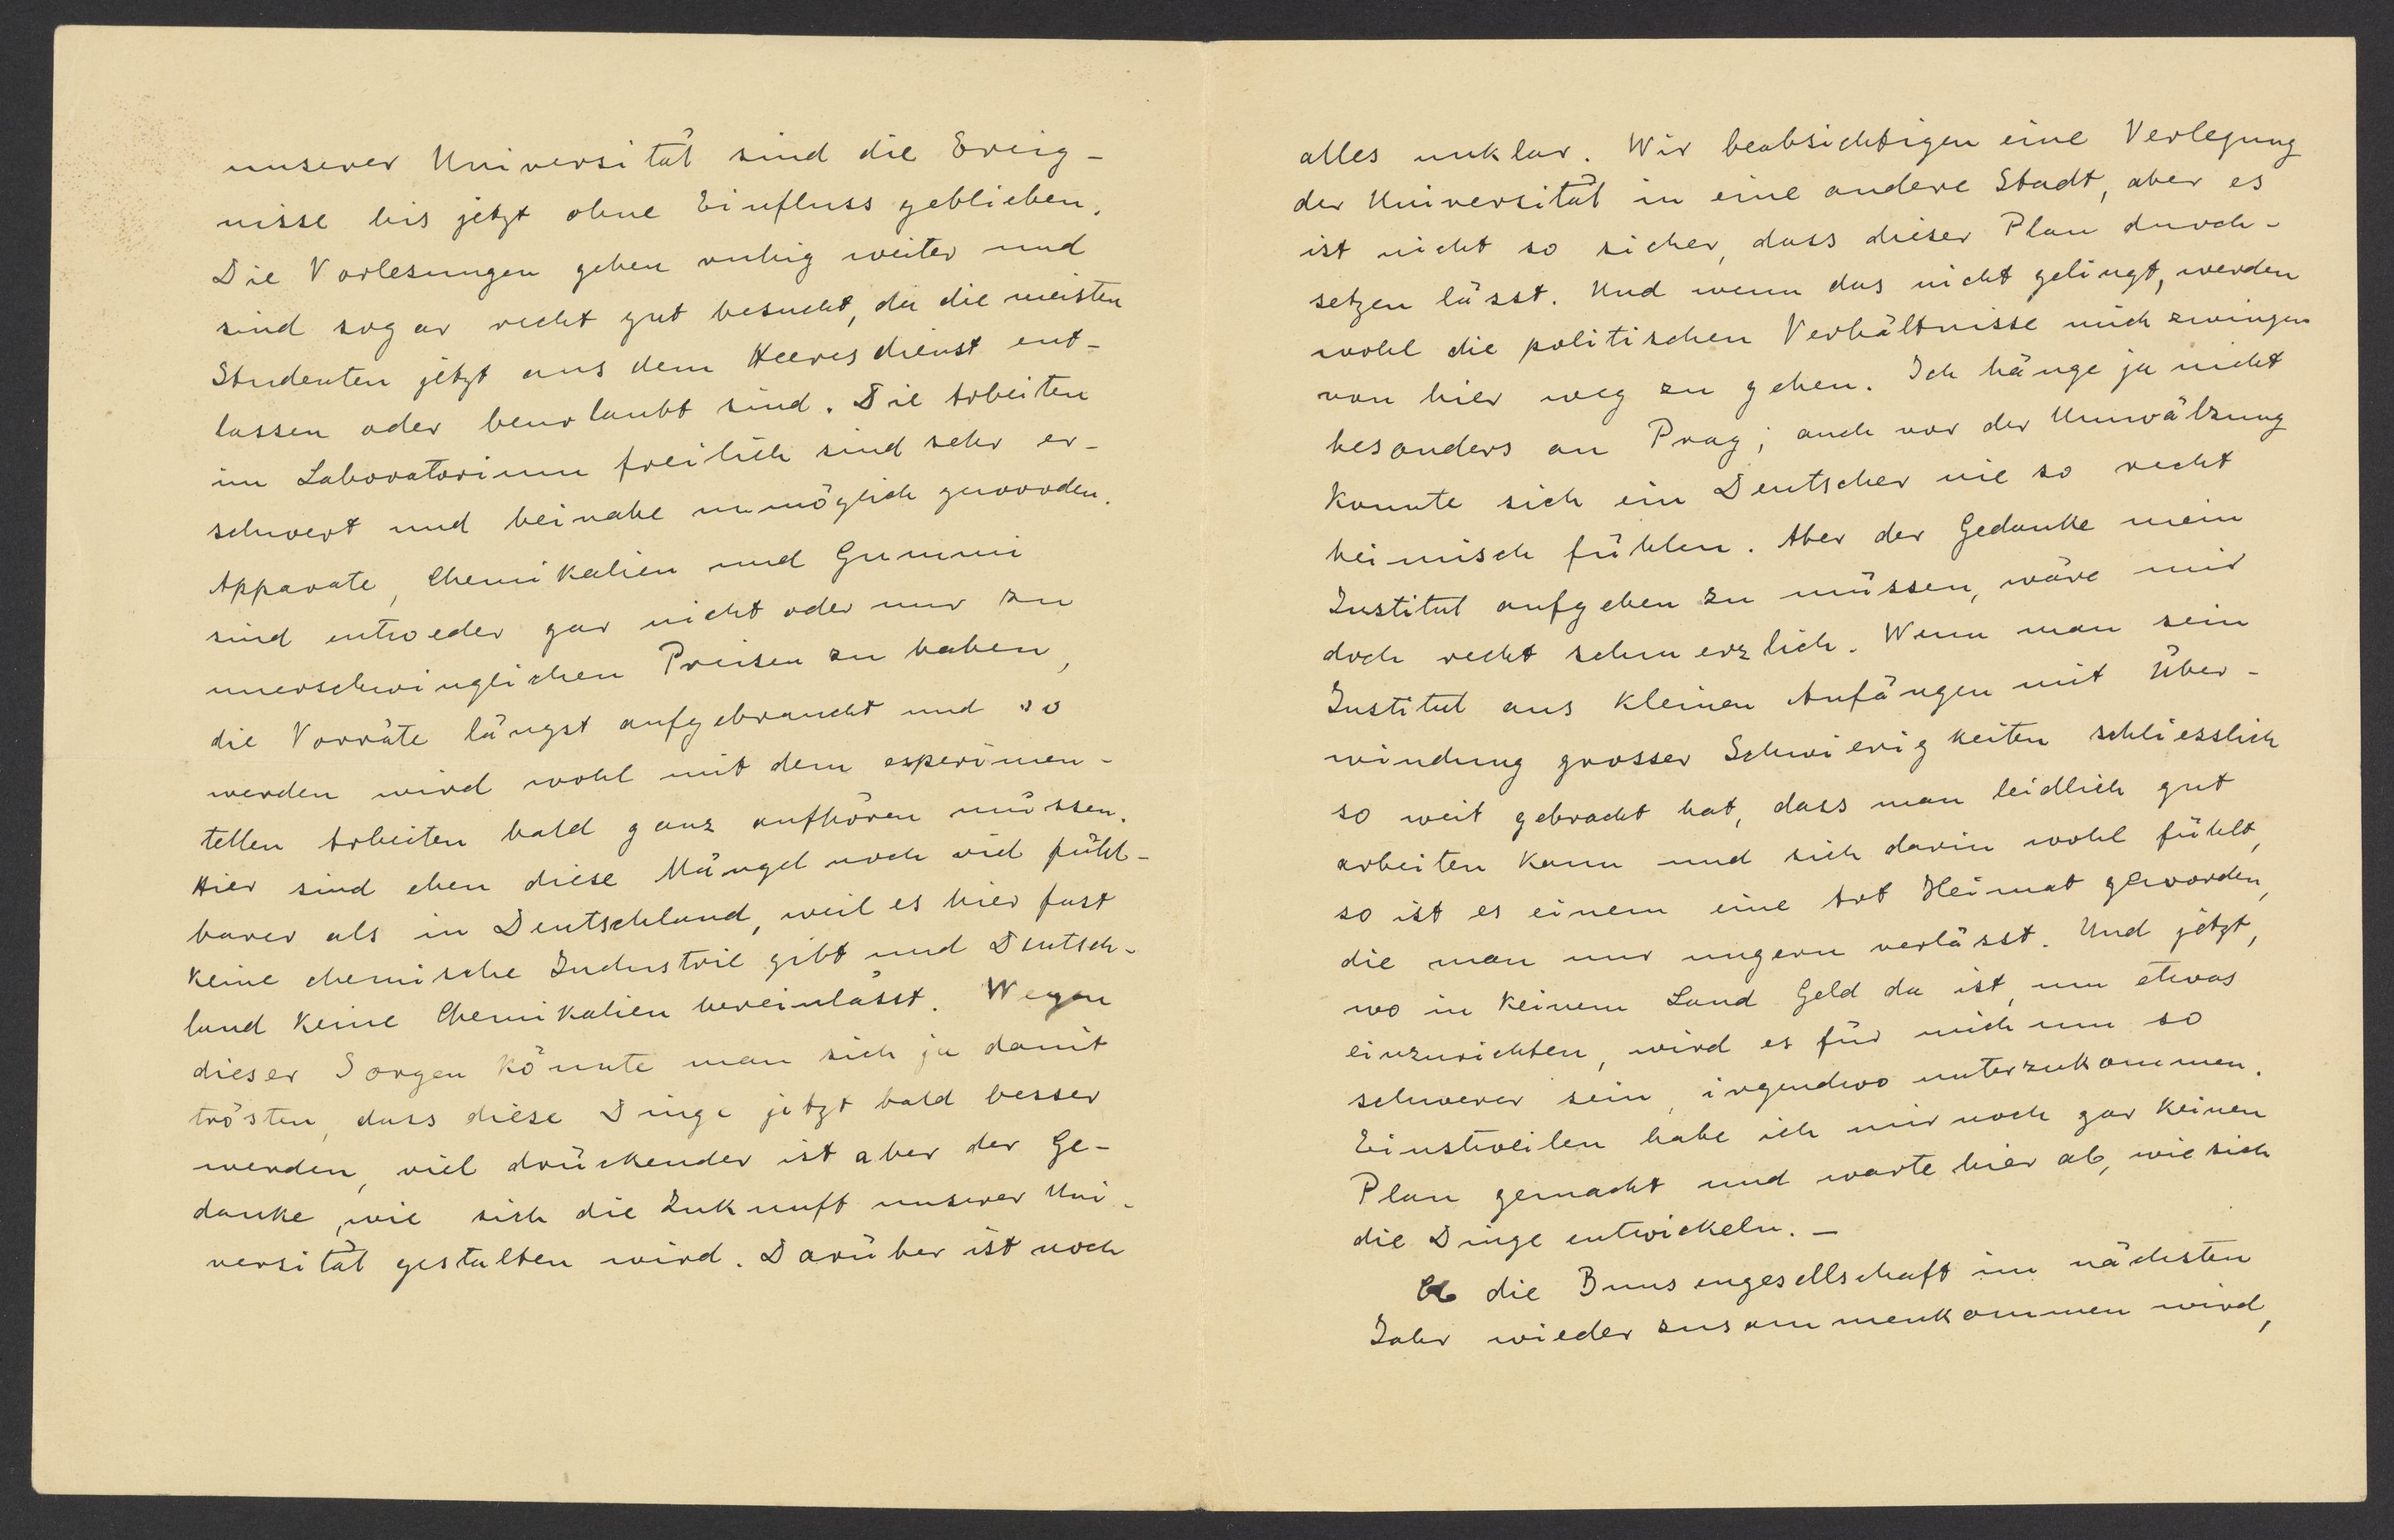 unserer Universität sind die Ereig-
nisse bis jetzt ohne Einfluss geblieben.
Die Vorlesungen gehen ruhig weiter und
sind sogar recht gut besucht, da die meisten
Studenten jetzt aus dem Heeresdienst ent-
lassen oder beurlaubt sind. Die Arbeiten
im Laboratorium freilich sind sehr er-
schwert und beinahe unmöglich geworden.
Apparate, Chemikalien und Gummi
sind entweder gar nicht oder nur zu
unerschwinglichen Preisen zu haben,
die Vorräte längst aufgebraucht und so
werden wird wohl mit dem experimen-
tellen Arbeiten bald ganz aufhören müssen.
Hier sind eben diese Mängel noch viel fühl-
barer als in Deutschland, weil es hier fast
keine chemische Industrie gibt und Deutsch-
land keine Chemikalien hereinlässt. Wegen
dieser Sorgen könnte man sich ja damit
trösten, dass diese Dinge jetzt bald besser
werden, viel drückender ist aber der Ge-
danke, wie sich die Zukunft unserer Uni-
versität gestalten wird. Darüber ist noch
alles unklar. Wir beabsichtigen eine Verlegung
der Universität in eine andere Stadt, aber es
ist nicht so sicher, dass dieser Plan durch-
setzen lässt. Und wenn das nicht gelingt, werden
wohl die politischen Verhältnisse mich zwingen
von hier weg zu gehen. Ich hänge ja nicht
besonders an Prag; auch vor der Umwälzung
konnte sich ein Deutscher nie so recht
heimisch fühlen. Aber der Gedanke mein
Institut aufgeben zu müssen, wäre mir
doch recht schmerzlich. Wenn man sein
Institut aus kleinen Anfängen mit Über-
windung grosser Schwierigkeiten schliesslich
so weit gebracht hat, dass man leidlich gut
arbeiten kann und sich darin wohl fühlt,
so ist es einem eine Art Heimat geworden,
die man nur ungern verlässt. Und jetzt,
wo in keinem Land Geld da ist, um etwas
einzurichten, wird es für mich um so
schwerer sein, irgendwo unterzukommen.
Einstweilen habe ich mir noch gar keinen
Plan gemacht und warte hier ab, wie sich
die Dinge entwickeln. –
Ob die Bunsengesellschaft im nächsten
Jahr wieder zusammenkommen wird,